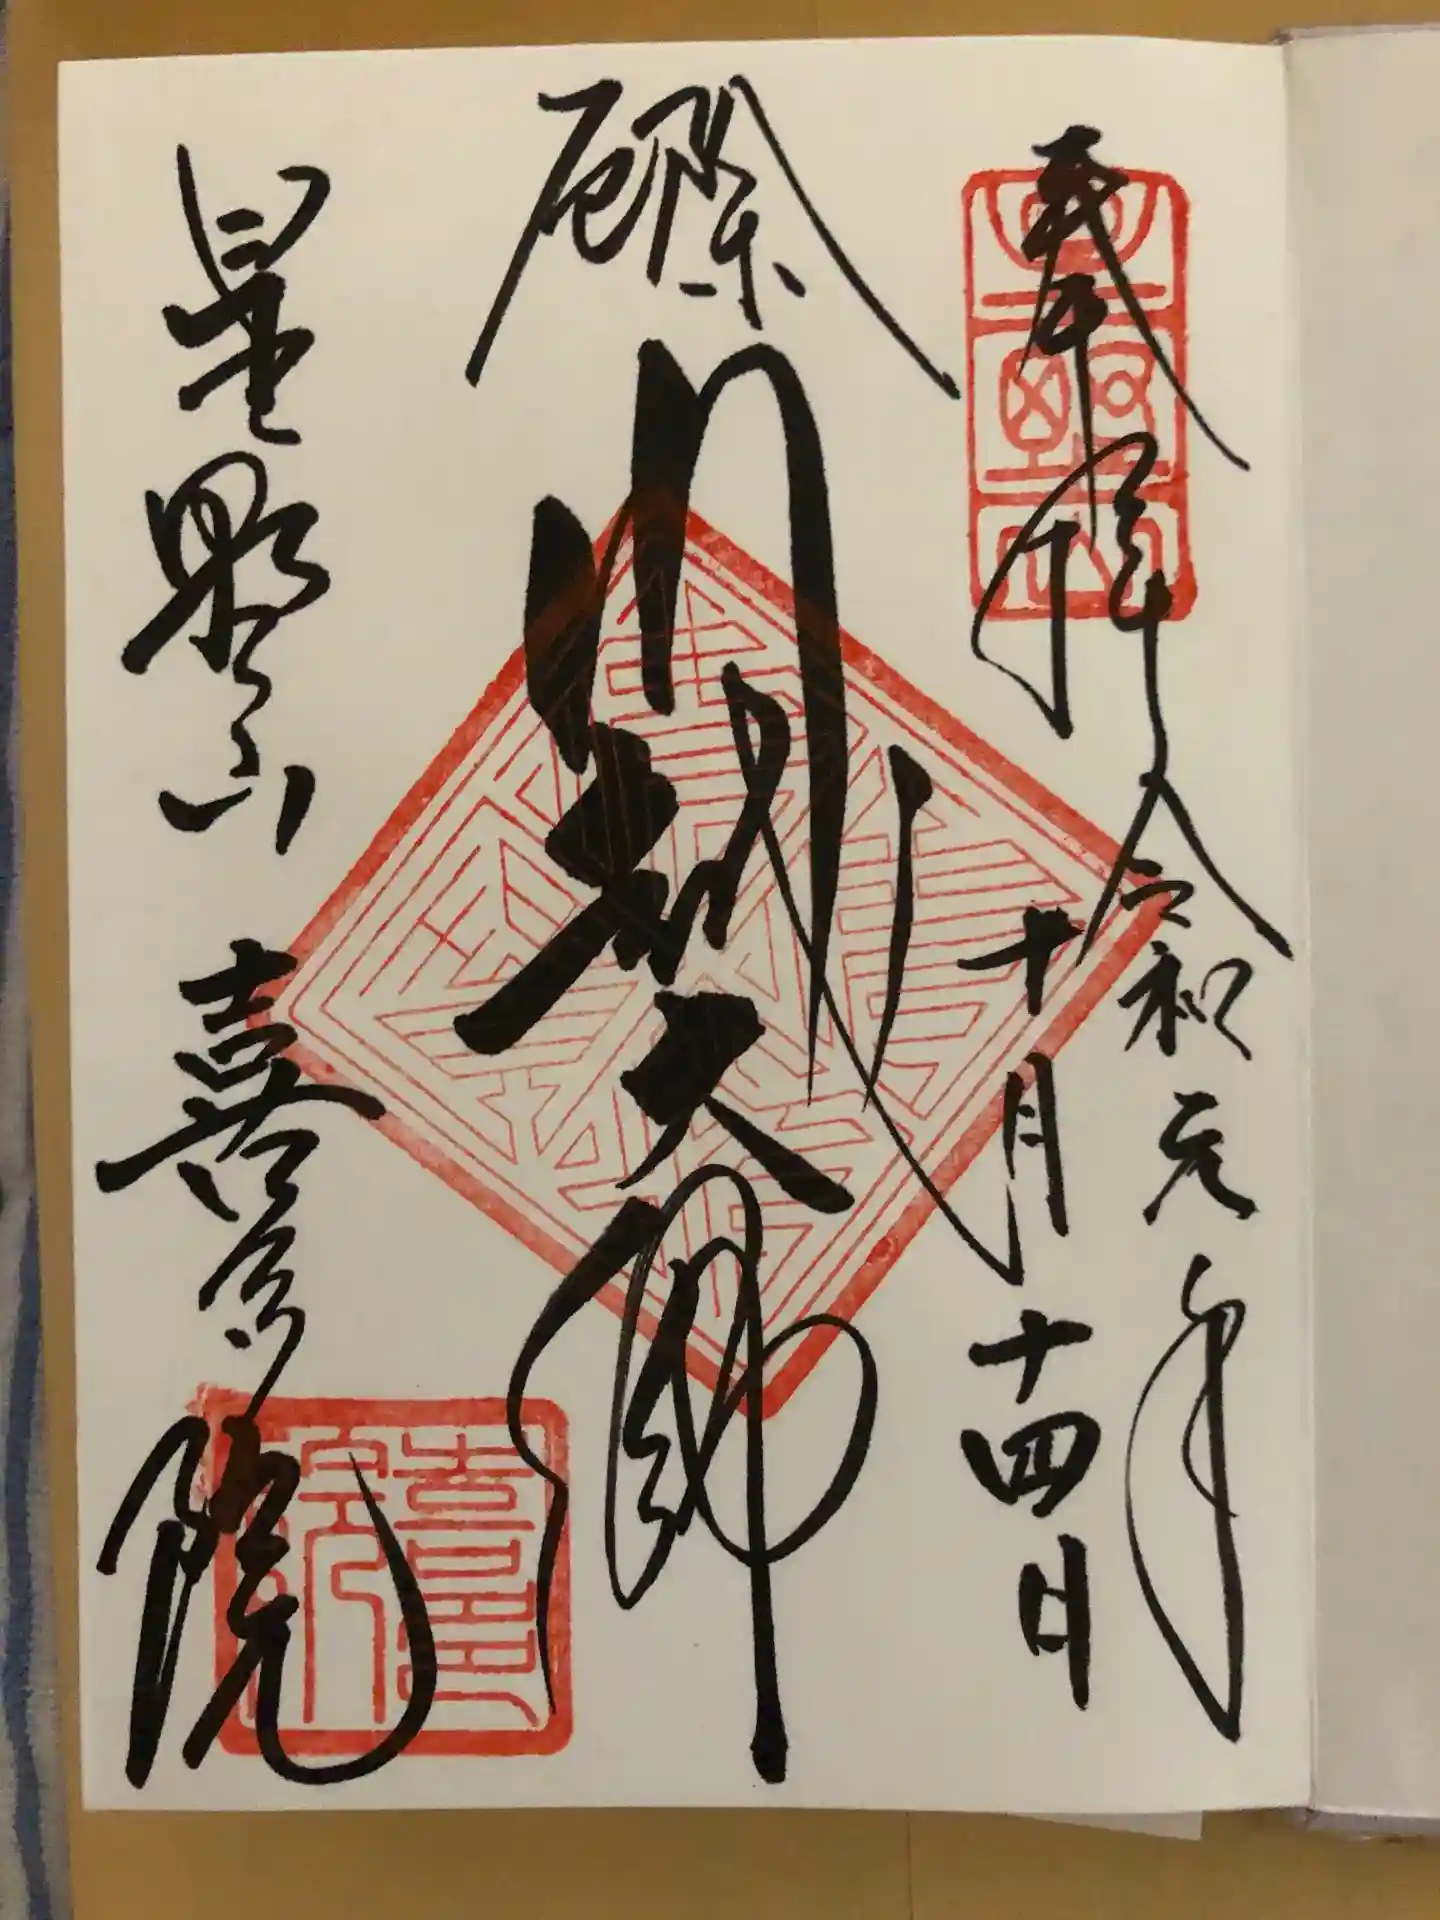 奉拝 令和元年
十月十四日
厄除
川越大師
星野山 喜多院
喜多院